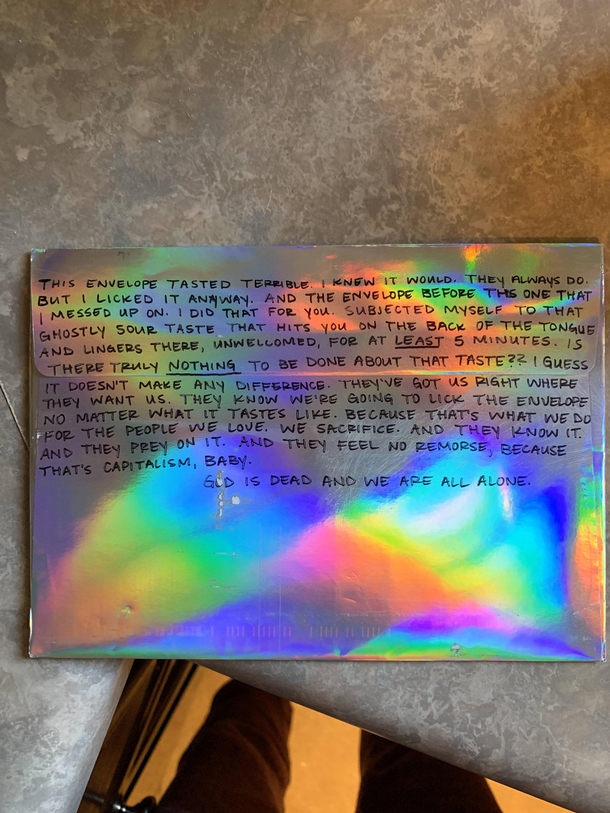 THIS ENVELOPE TASTED TERRIBLE. I KNEW IT WOULD. THEY ALWAYS DO.
BUT I LICKED IT ANYWAY. AND THE ENVELOPE BEFORE THIS ONE THAT
I MESSED UP ON. I DID THAT FOR YOU. SUBJECTED MYSELF TO THAT
GHOSTLY SOUR TASTE THAT HITS YOU ON THE BACK OF THE TONGUE
AND LINGERS THERE, UNWELCOMED, FOR AT LEAST 5 MINUTES. IS
THERE TRULY NOTHING TO BE DONE ABOUT THAT TASTE?? I GUESS
IT DOESN'T MAKE ANY DIFFERENCE. THEY'VE GOT US RIGHT WHERE
THEY WANT US. THEY KNOW WE'RE GOING TO LICK THE ENVELOPE
NO MATTER WHAT IT TASTES LIKE. BECAUSE THAT'S WHAT WE DO
FOR THE PEOPLE WE LOVE. WE SACRIFICE. AND THEY KNOW IT.
AND THEY PREY ON IT. AND THEY FEEL NO REMORSE, BECAUSE
THAT'S CAPITALISM, BABY.
GOD IS DEAD AND WE ARE ALL ALONE.